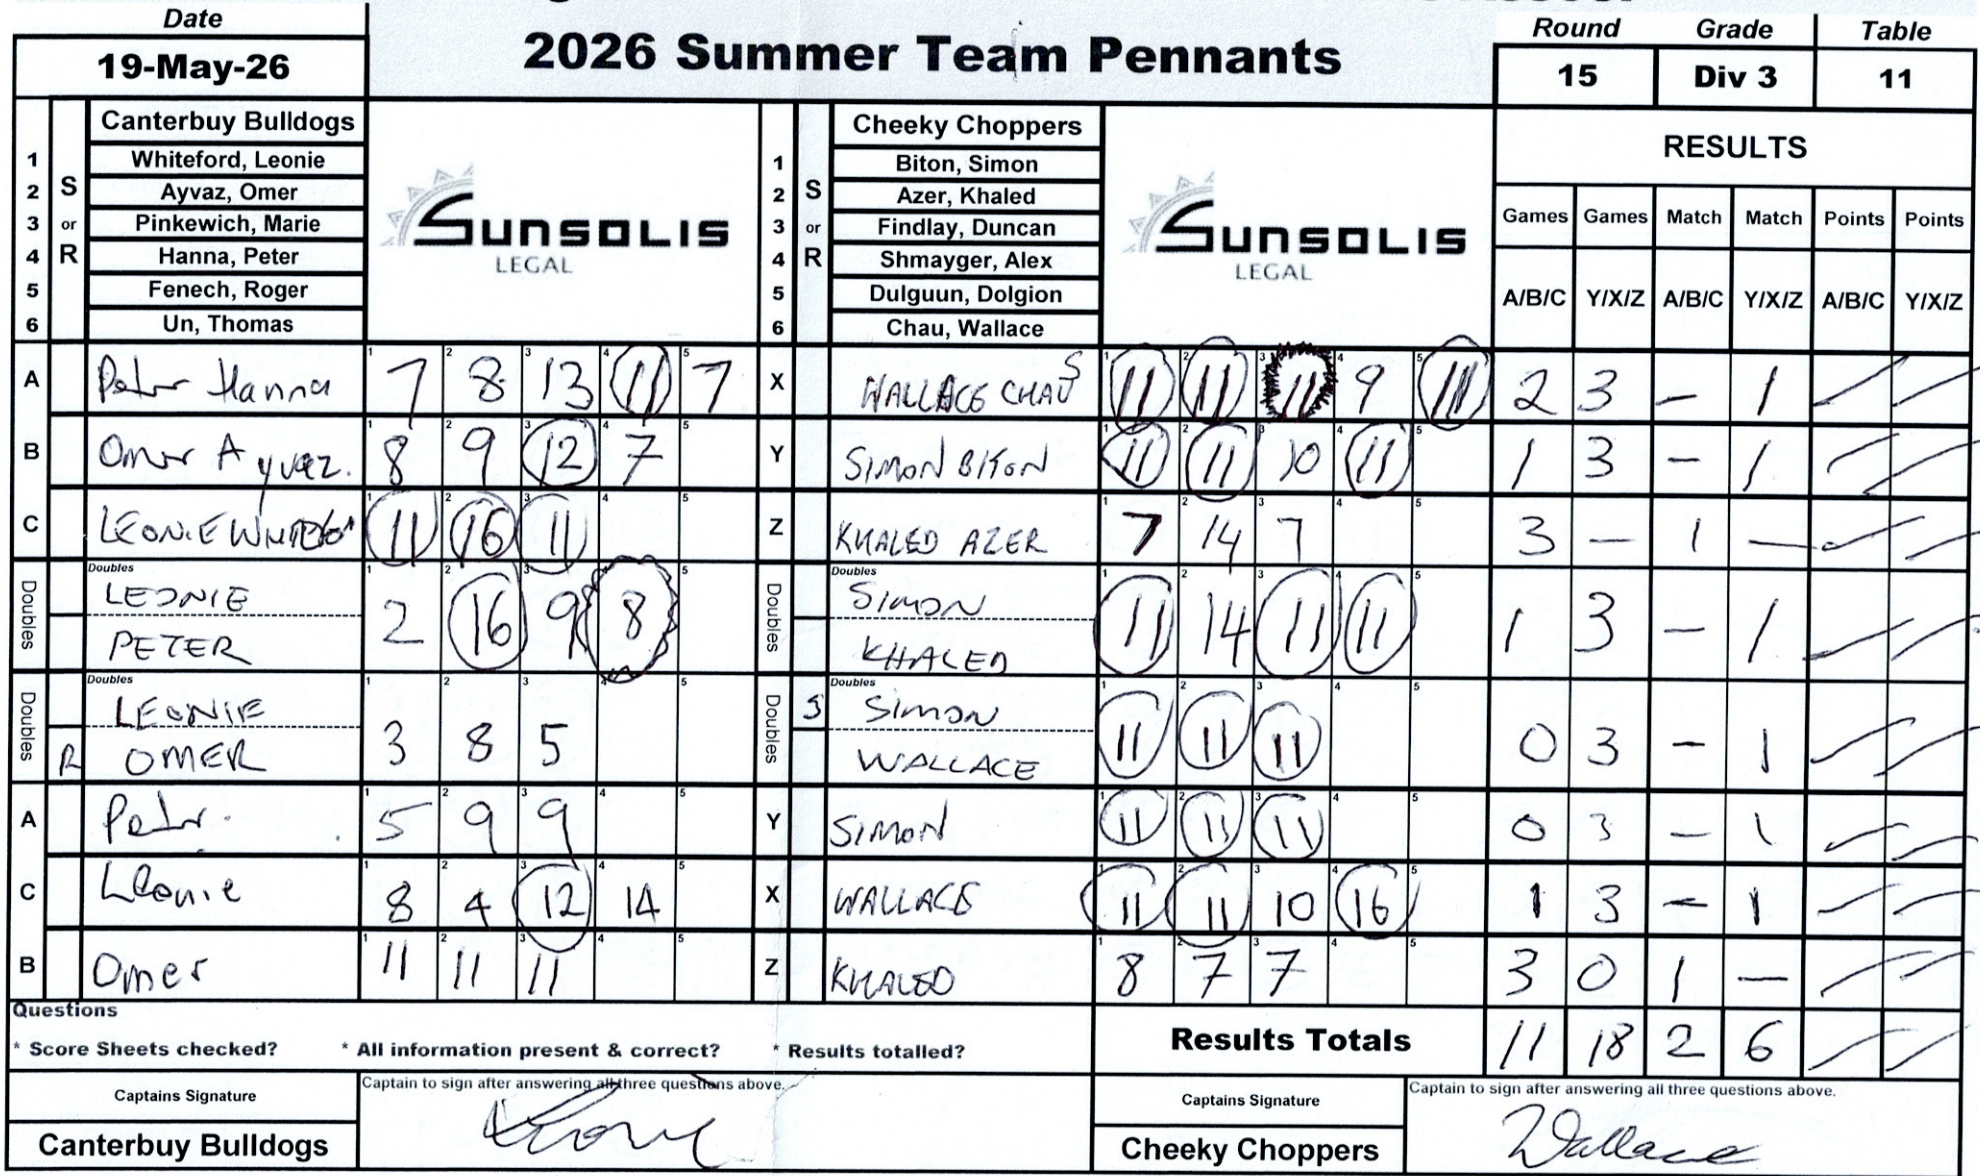 Date
19-May-26
2026 Summer Team Pennants
Round Grade Table
15 Div 3 11
Canterbuy Bulldogs
1 Whiteford, Leonie
2 Ayvaz, Omer
3 Pinkewich, Marie
4 Hanna, Peter
5 Fenech, Roger
6 Un, Thomas
S or R
SUNSOLIS
LEGAL
Cheeky Choppers
1 Biton, Simon
2 Azer, Khaled
3 Findlay, Duncan
4 Shmayger, Alex
5 Dulguun, Dolgion
6 Chau, Wallace
S or R
SUNSOLIS
LEGAL
RESULTS
Games Games Match Match Points Points
A/B/C Y/X/Z A/B/C Y/X/Z A/B/C Y/X/Z
A Peter Hanna 7 8 13 11 7 X WALLACE CHAU S 11 11 11 9 11 2 3 – 1
B Omer Ayvaz. 8 9 12 7 Y SIMON BITON 11 11 10 11 1 3 – 1
C LEONIE 11 16 11 Z KHALED AZER 7 14 7 3 – 1 –
Doubles Doubles LEONIE PETER 2 16 9 8 Doubles Doubles SIMON KHALED 11 14 11 11 1 3 – 1
Doubles Doubles LEONIE R OMER 3 8 5 Doubles S Doubles SIMON WALLACE 11 11 11 0 3 – 1
A Peter. 5 9 9 Y SIMON 11 11 11 0 3 – 1
C Leonie 8 4 12 14 X WALLACE 11 11 10 16 1 3 – 1
B Omer 11 11 11 Z KHALED 8 7 7 3 0 1 –
Questions
* Score Sheets checked? * All information present & correct? * Results totalled?
Results Totals 11 18 2 6
Captains Signature
Captain to sign after answering all three questions above.
Canterbuy Bulldogs
Captains Signature
Captain to sign after answering all three questions above.
Cheeky Choppers
Wallace